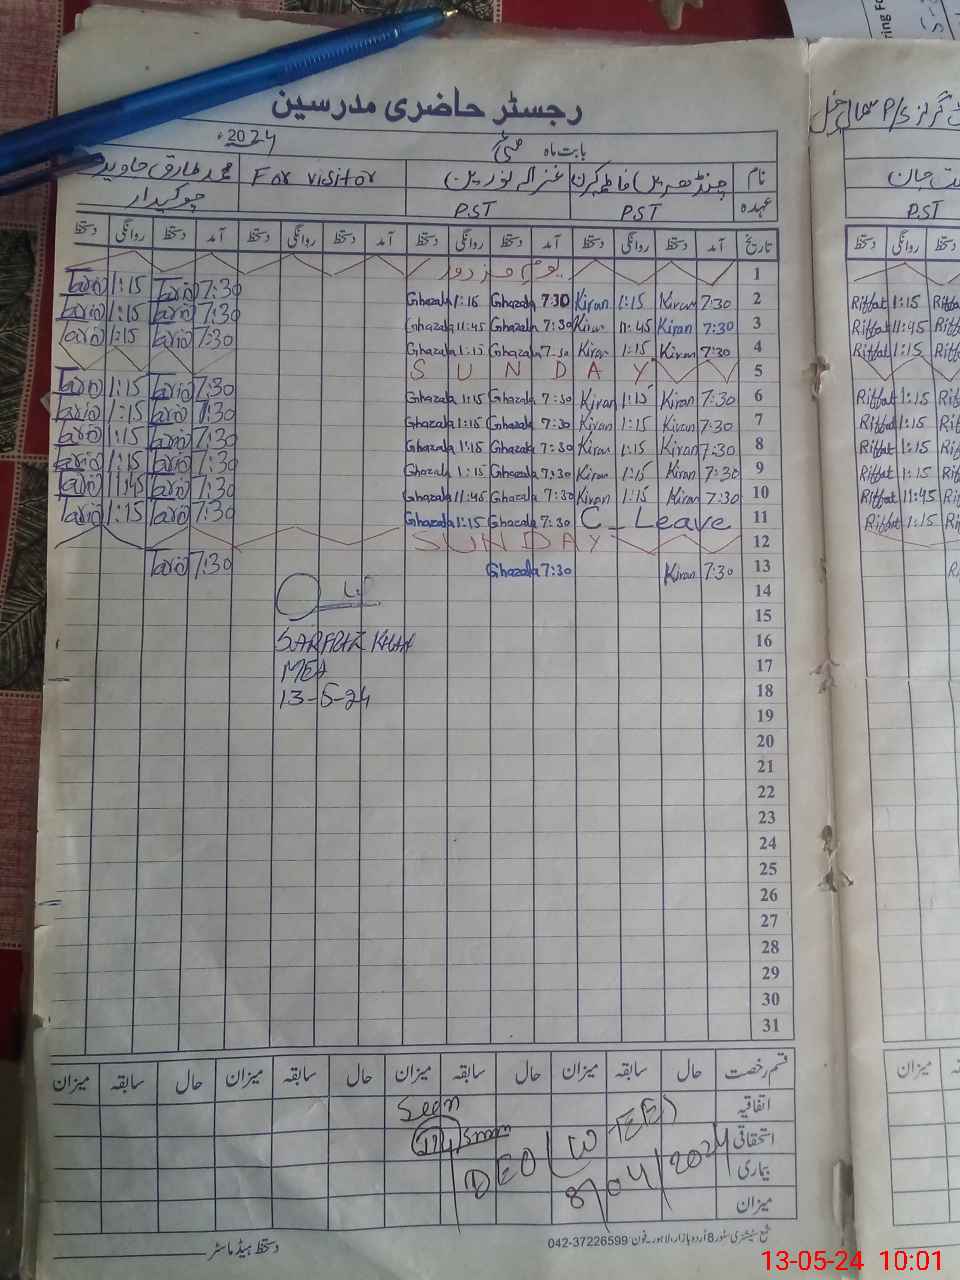 رجسٹر حاضری مدرسین
بابت ماہ مئی 2024ء
نام چنڈھریں / فاطمہ کرن غزالہ نورین For visitor محمد طارق جاوید
عہدہ PST PST چوکیدار
تاریخ آمد دستخط روانگی دستخط آمد دستخط روانگی دستخط آمد دستخط روانگی دستخط آمد دستخط روانگی دستخط
1 یوم مزدور
2 7:30 Kiran 1:15 Kiran 7:30 Ghazala 1:15 Ghazala 7:30 Tariq 1:15 Tariq
3 7:30 Kiran 11:45 Kiran 7:30 Ghazala 11:45 Ghazala 7:30 Tariq 1:15 Tariq
4 7:30 Kiran 1:15 Kiran 7:30 Ghazala 1:15 Ghazala 7:30 Tariq 1:15 Tariq
5 SUNDAY
6 7:30 Kiran 1:15 Kiran 7:30 Ghazala 1:15 Ghazala 7:30 Tariq 1:15 Tariq
7 7:30 Kiran 1:15 Kiran 7:30 Ghazala 1:15 Ghazala 7:30 Tariq 1:15 Tariq
8 7:30 Kiran 1:15 Kiran 7:30 Ghazala 1:15 Ghazala 7:30 Tariq 1:15 Tariq
9 7:30 Kiran 1:15 Kiran 7:30 Ghazala 1:15 Ghazala 7:30 Tariq 1:15 Tariq
10 7:30 Kiran 1:15 Kiran 7:30 Ghazala 11:45 Ghazala 7:30 Tariq 11:45 Tariq
11 C_Leave 7:30 Ghazala 1:15 Ghazala 7:30 Tariq 1:15 Tariq
12 SUNDAY
13 7:30 Kiran 7:30 Ghazala 7:30 Tariq
14
15
16 SARFRAZ KHAN
17 MEA
18 13-5-24
19
20
21
22
23
24
25
26
27
28
29
30
31
قسم رخصت حال سابقہ میزان حال سابقہ میزان حال سابقہ میزان حال سابقہ میزان
اتفاقیہ Seen
استحقاقی
بیماری DEO (W-EE)
میزان 8/04/2024
دستخط ہیڈ ماسٹر
شمع سٹیشنری سٹور 8 اُردو بازار، لاہور۔ فون 042-37226599
PST
دستخط روانگی دستخط
Riffat 1:15
Riffat 11:45
Riffat 1:15
Riffat 1:15
Riffat 1:15
Riffat 1:15
Riffat 1:15
Riffat 11:45
Riffat 1:15
میزان
13-05-24 10:01